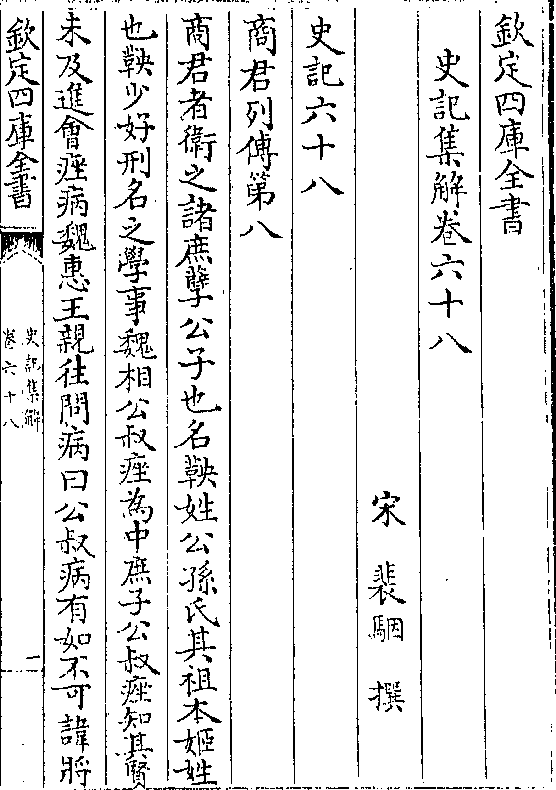 欽定四庫全書
史記集解卷六十八
宋裴駰撰
史記六十八
商君列傳第八
商君者衛之諸庶孽公子也名鞅姓公孫氏其祖本姬姓
也鞅少好刑名之學事魏相公叔痤為中庶子公叔痤知其賢
未及進會痤病魏惠王親往問病曰公叔病有如不可諱將
欽定四庫全書
史記集解
卷六十八
一